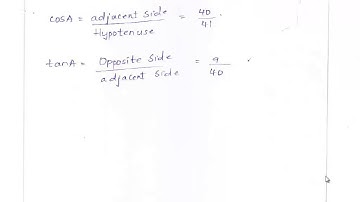 cosA = adjacent side / Hypotenuse = 40/41 .
tanA = Opposite Side / adjacent Side = 9/40 .